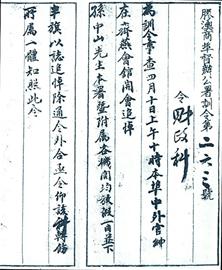 膠澳商埠督辦公署訓令第二六三號
令財政科
為訓令事查四月十日上午十時本埠中外官紳
在齊燕會館開會追悼
孫中山先生本署暨附屬各機關均放假一日並下
半旗以誌追悼除通令外合亟令仰該科轉飭
所屬一體知照此令